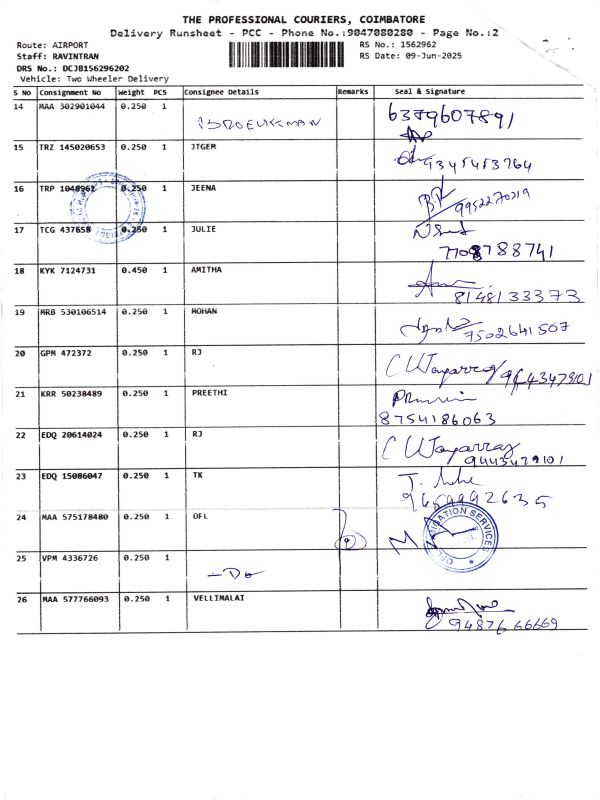 THE PROFESSIONAL COURIERS, COIMBATORE
Delivery Runsheet - PCC - Phone No.:9047080280 - Page No.:2
Route: AIRPORT
RS No.: 1562962
Staff: RAVINTRAN
RS Date: 09-Jun-2025
DRS No.: DCJB156296202
Vehicle: Two Wheeler Delivery
S No Consignment No Weight PCS Consignee Details Remarks Seal & Signature
14 MAA 302901044 0.250 1 6379607891
15 TRZ 145020653 0.250 1 JTGEM
9345453764
16 TRP 1048962 0.250 1 JEENA
9952270219
17 TCG 437658 0.250 1 JULIE
7708788741
18 KYK 7124731 0.450 1 AMITHA
8148133373
19 MRB 530106514 0.250 1 MOHAN
7502641507
20 GPM 472372 0.250 1 RJ
21 KRR 50238489 0.250 1 PREETHI
8754186063
22 EDQ 20614024 0.250 1 RJ
9443479101
23 EDQ 15086047 0.250 1 TK
9659992635
24 MAA 575178480 0.250 1 OFL
25 VPM 4336726 0.250 1
-Do
26 MAA 577766093 0.250 1 VELLIMALAI
9487666669